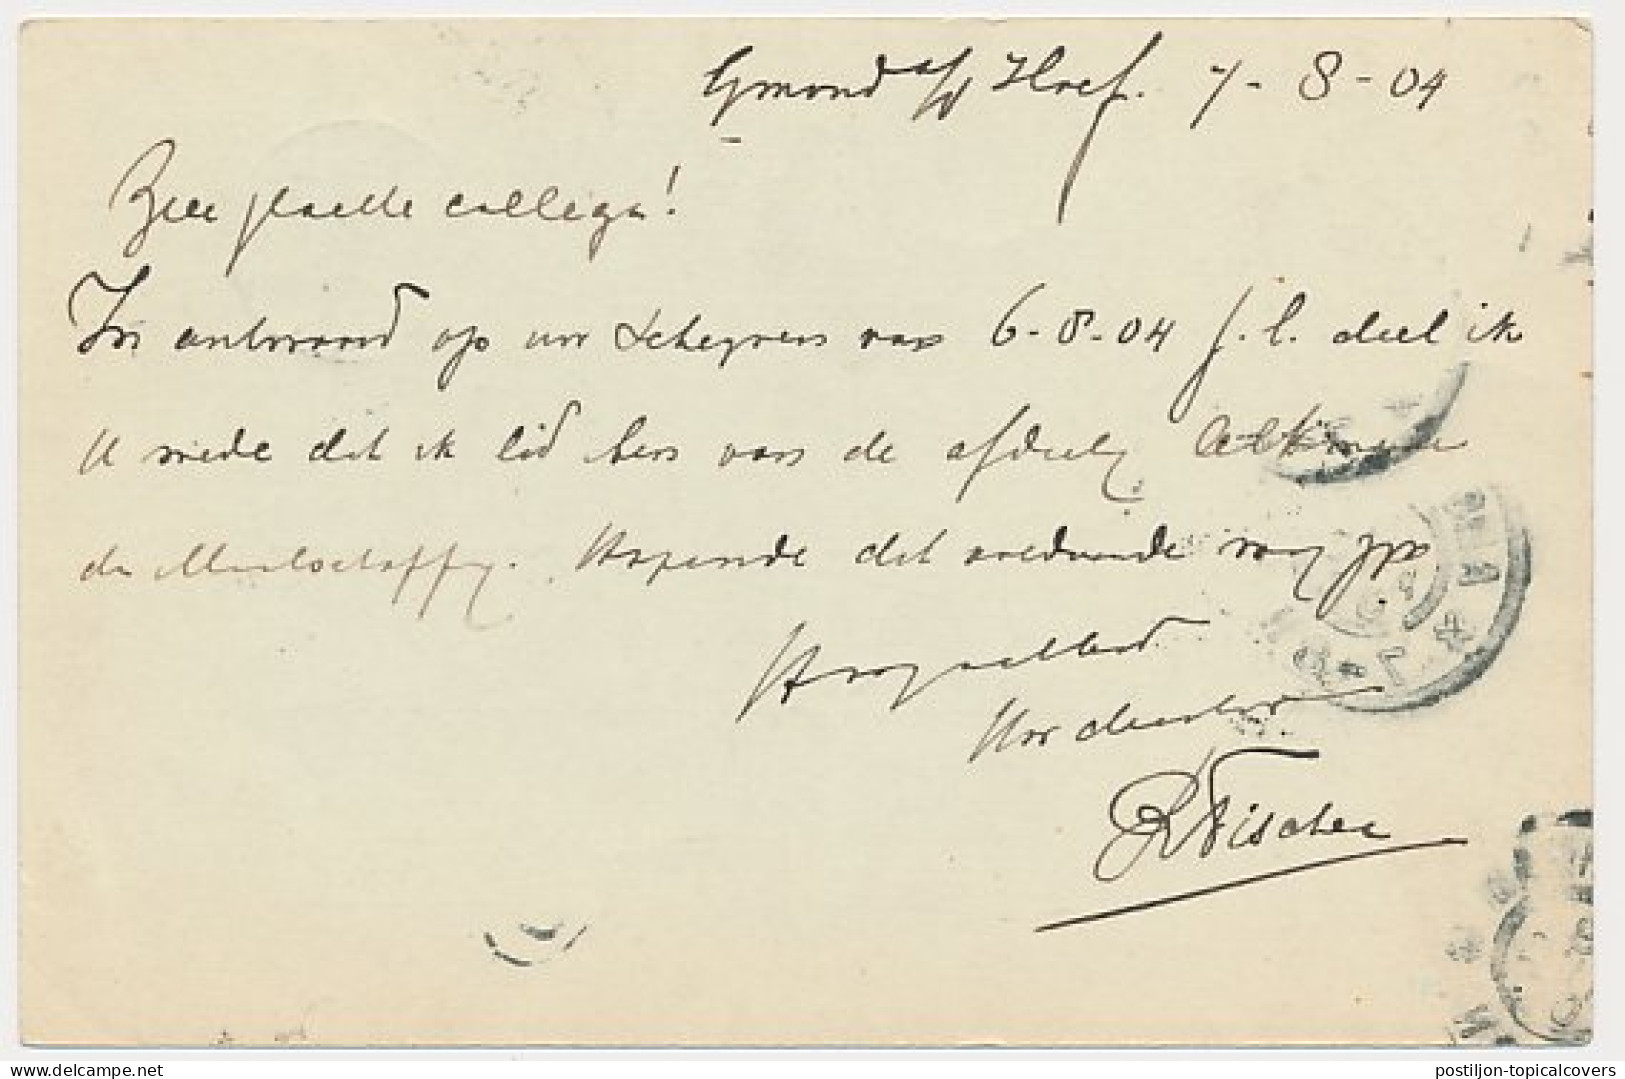 Egmond a/d Hoef. 7-8-04
Zeer geachte collega!
In antwoord op uw schrijven van 6-8-04 j.l. deel ik
U mede dat ik lid ben van de afdeeling Alkmaar
der Maatschappij. Hopende dat voldoende
Hoogachtend
Uw dienstw
R Visscher
postiljon-topicalcovers